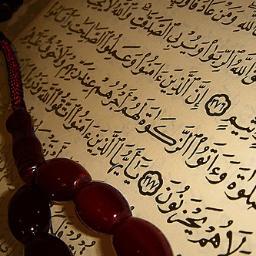 الله ومن عاد فأو
الله الربوا ويربى الصدقت والله لا يحب
ثيم ٢٧٦ إن الذين ءامنوا وعملوا الصلحت
صلوة وءاتوا الزكوة لهم أجرهم عند ربهم ولا خو
لا هم يحزنون ٢٧٧ يأيها الذين ءامنوا اتقوا الله